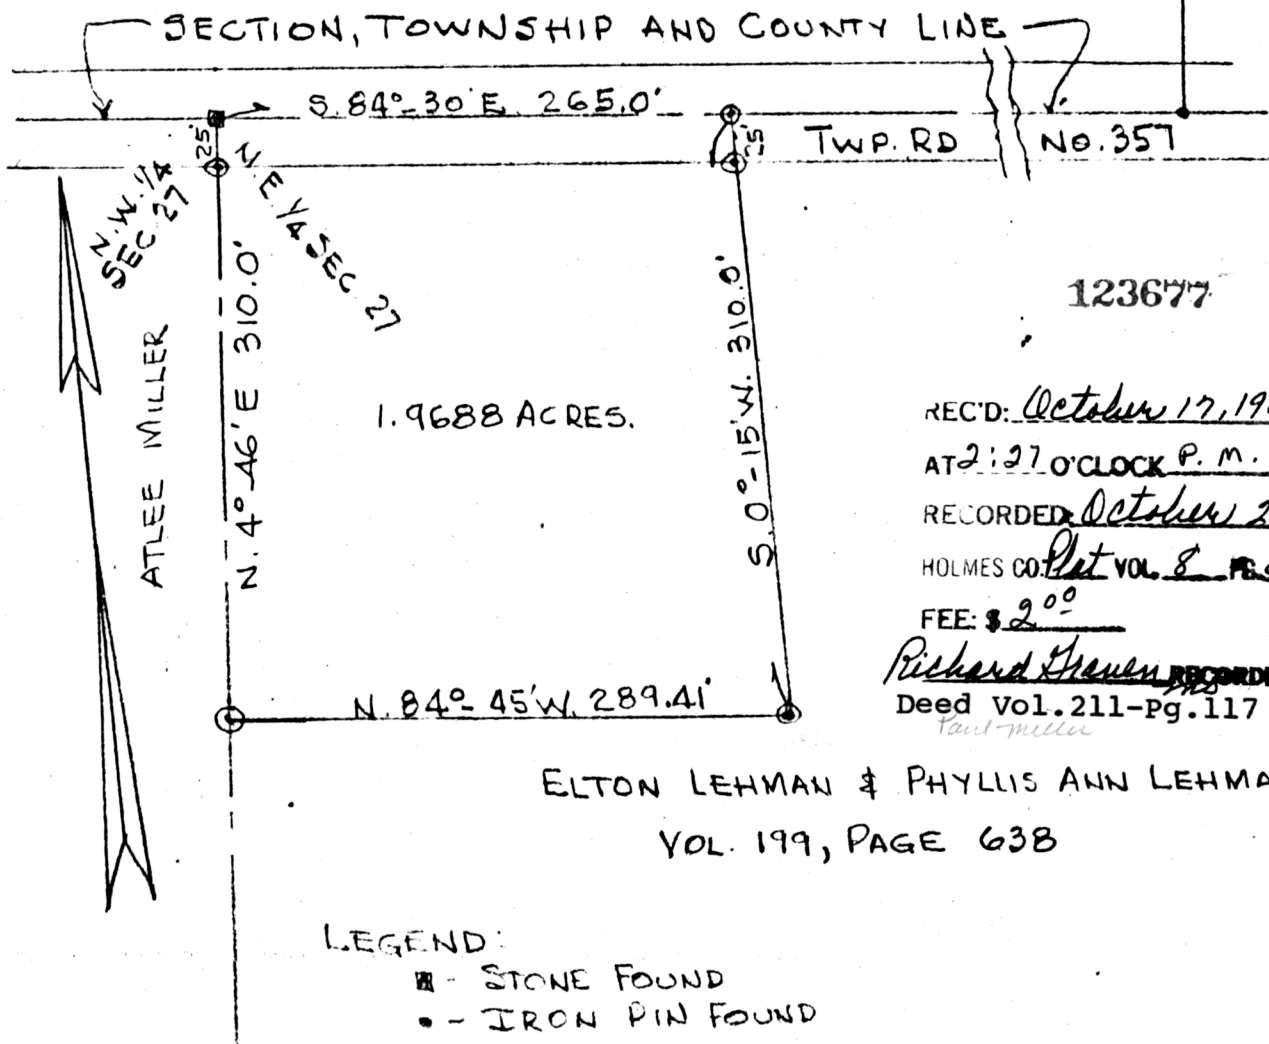 SECTION, TOWNSHIP AND COUNTY LINE
S. 84°-30'E. 265.0'
25'
25'
TWP. RD No. 357
N.W. 1/4
SEC 27
N.E. 1/4 SEC. 27
123677
N. 4°-46'E 310.0'
S. 0°-15'W. 310.0'
ATLEE MILLER
1.9688 ACRES.
REC'D: October 17, 19
AT 2:27 O'CLOCK P. M.
RECORDED: October 2
HOLMES CO. Plat VOL. 8 PG.
FEE: $ 2.00
Richard Graven RECORDE
Deed Vol.211-Pg.117
Paul Miller
N. 84°-45'W. 289.41'
ELTON LEHMAN & PHYLLIS ANN LEHMA
VOL. 199, PAGE 638
LEGEND:
- STONE FOUND
- IRON PIN FOUND